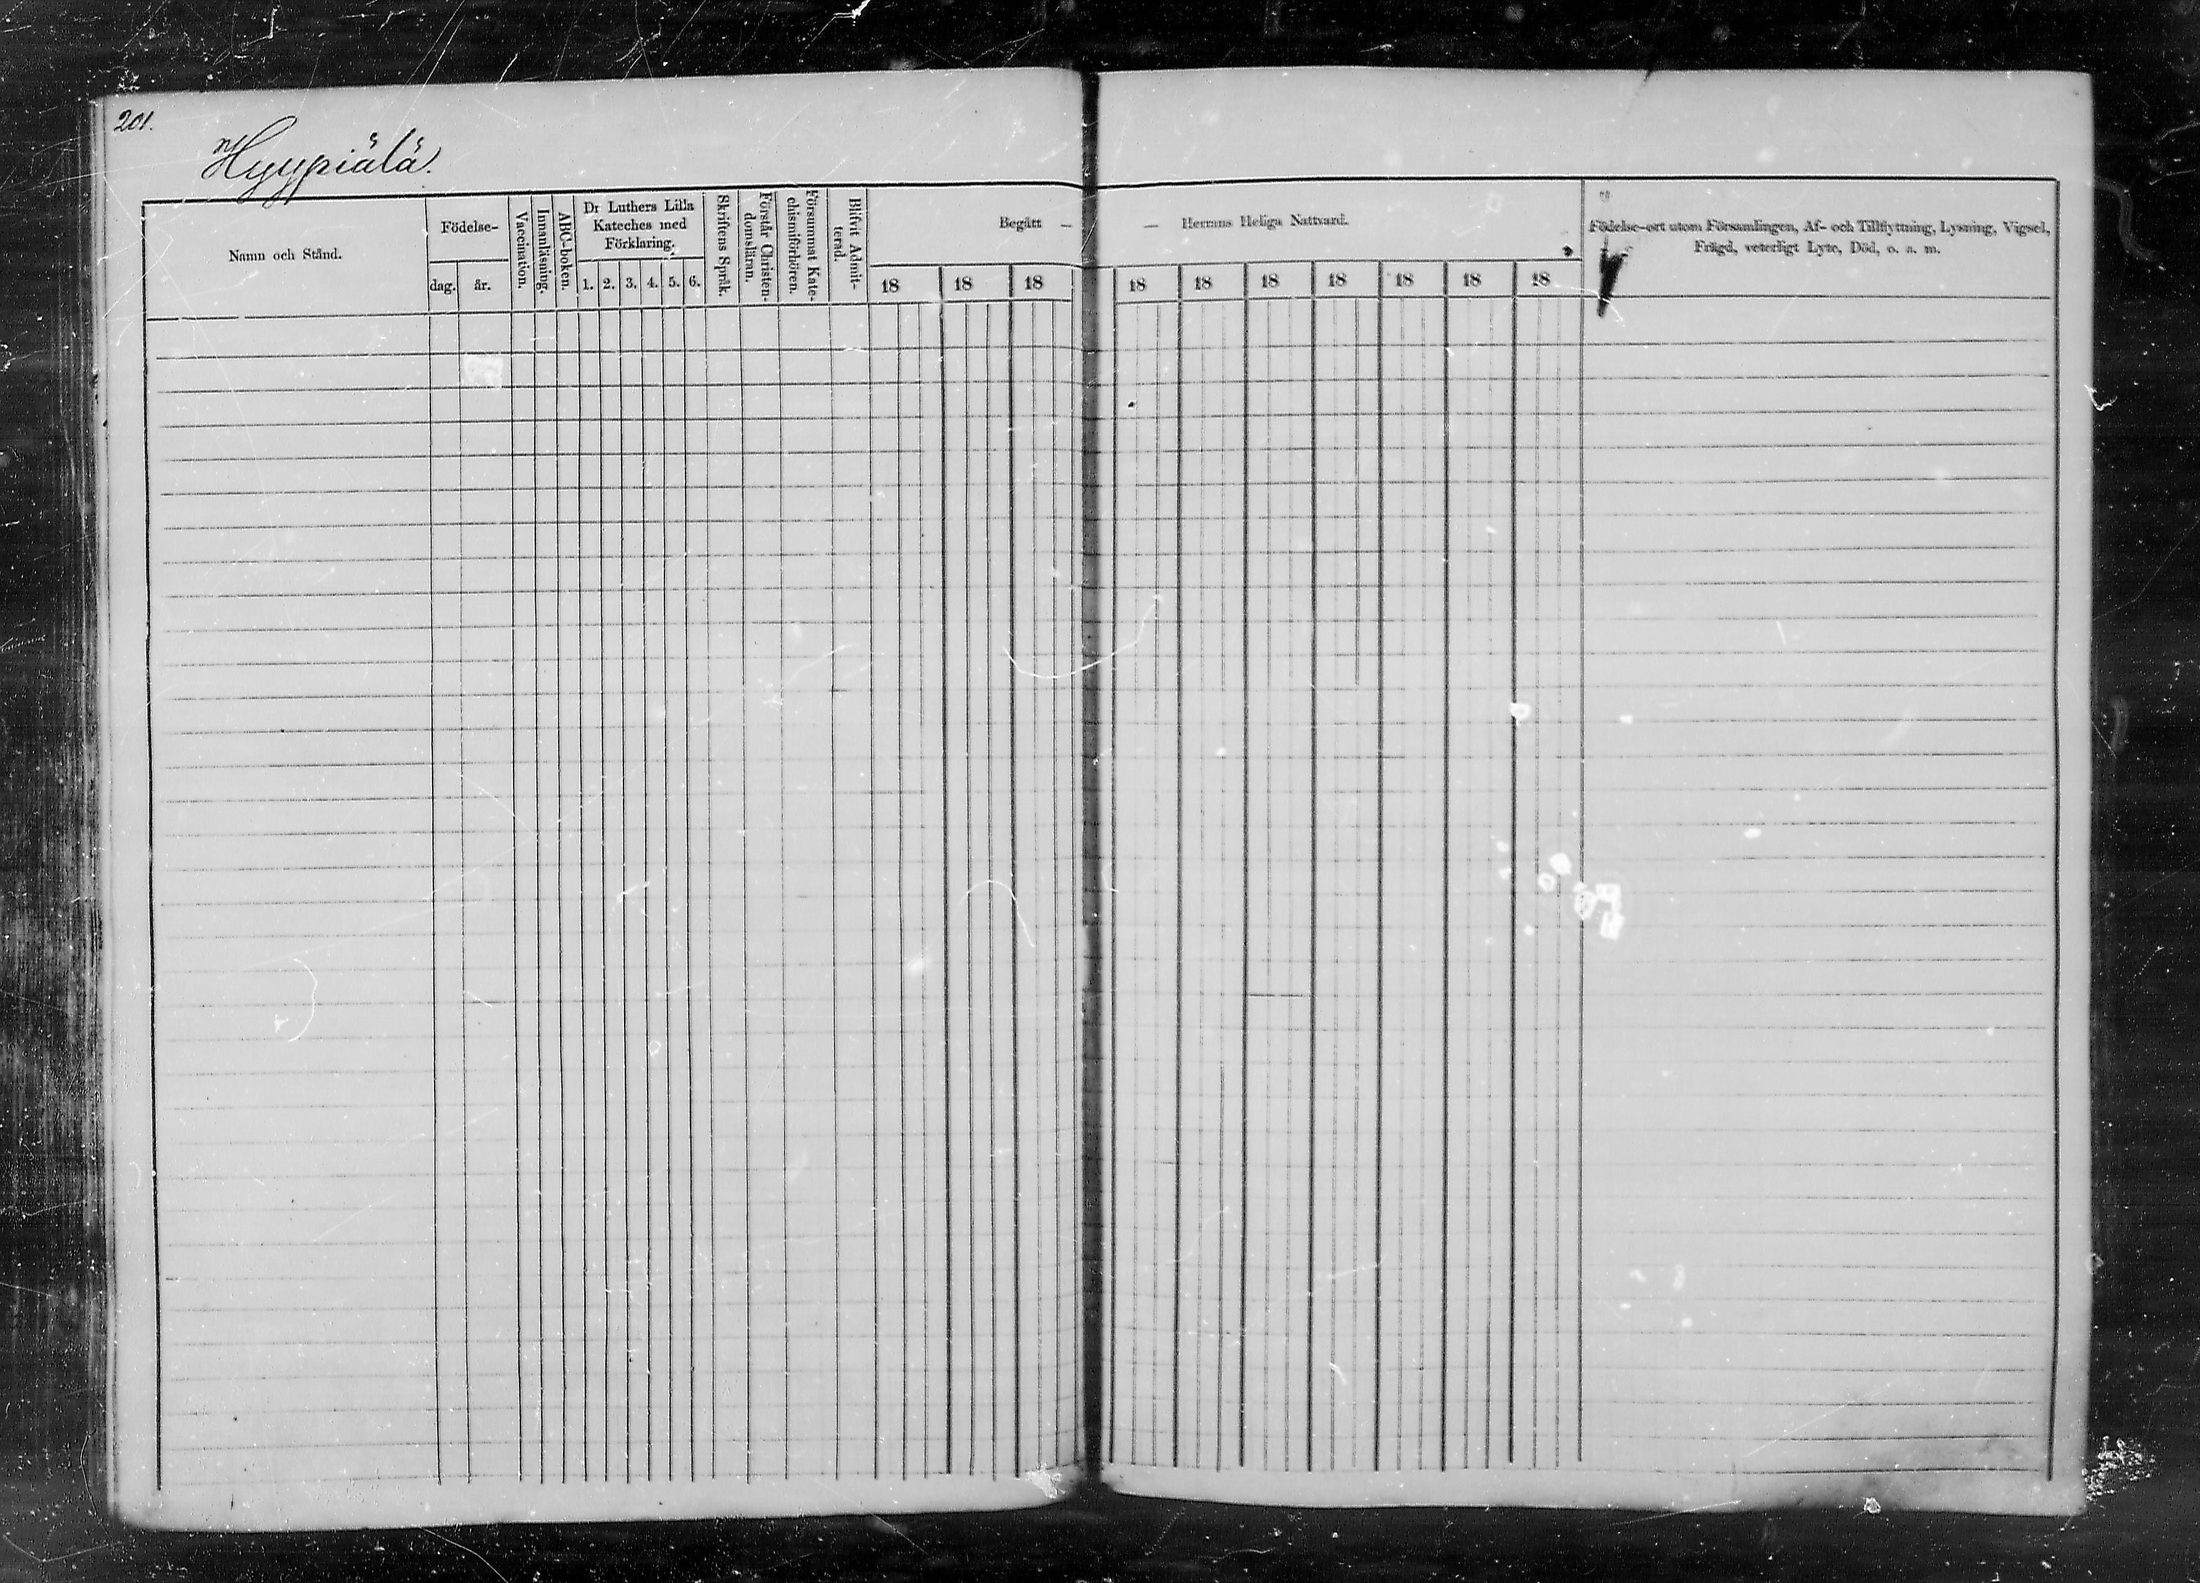 201.
Hyypiälä.
Namn och Stånd.
Födelse-
dag.
år.
Vaccination.
Innanläsning.
ABC-boken.
Dr Luthers Lilla
Kateches med
Förklaring.
1. 2. 3. 4. 5. 6.
Skriftens Språk.
Förstår Christen-
domsläran.
Försummat Kate-
chismiförhören.
Blifvit Admit-
terad.
Begått —
— Herrans Heliga Nattvard.
18 18 18 18 18 18 18 18 18 18
Födelse-ort utom Församlingen, Af- och Tillflyttning, Lysning, Vigsel,
Frägd, veterligt Lyte, Död, o. a. m.